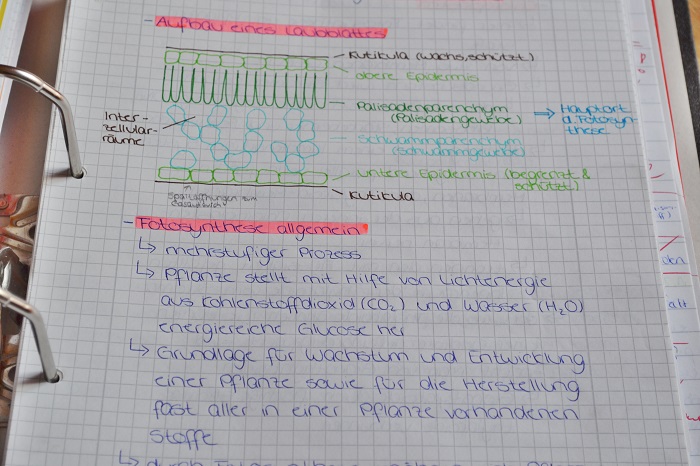 - Aufbau eines Laubblattes
Kutikula (Wachs, schützt)
obere Epidermis
Palisadenparenchym
(Palisadengewebe)
⇒ Hauptort
d. Fotosyn-
these
Inter-
zellular-
räume
Schwammparenchym
(Schwammgewebe)
untere Epidermis (begrenzt &
schützt)
Kutikula
Spaltöffnungen zum
Gasaustausch
- Fotosynthese allgemein
↳ mehrstufiger Prozess
↳ Pflanze stellt mit Hilfe von Lichtenergie
aus Kohlenstoffdioxid (CO₂) und Wasser (H₂O)
energiereiche Glucose her
↳ Grundlage für Wachstum und Entwicklung
einer Pflanze sowie für die Herstellung
fast aller in einer Pflanze vorhandenen
Stoffe
↳ durch